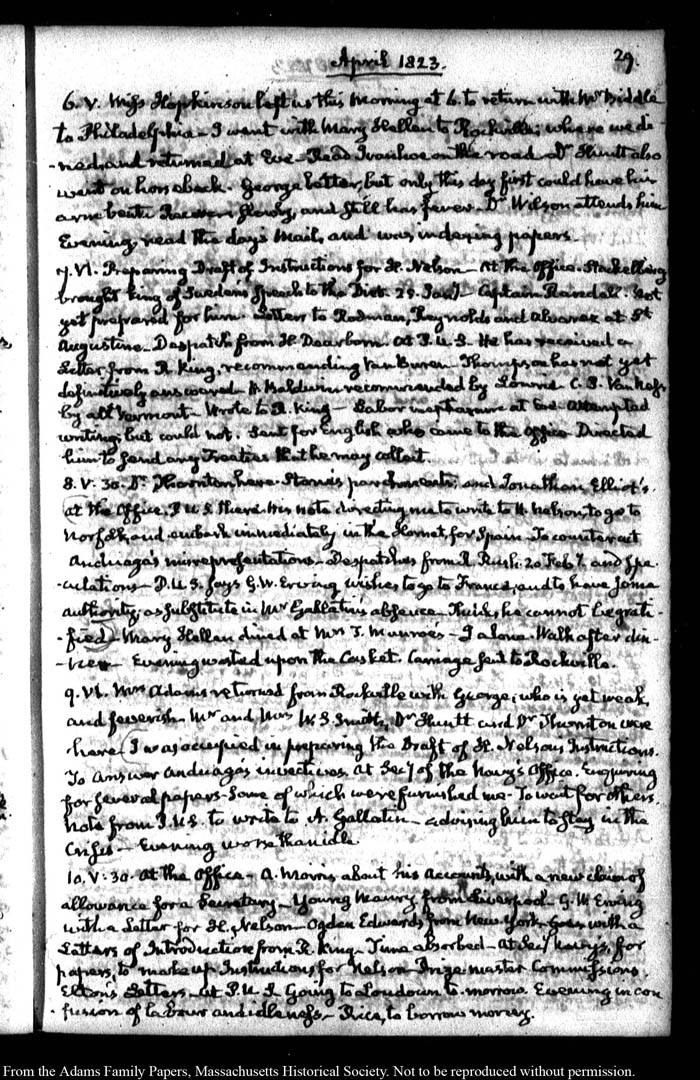 April 1823.
29.
6. V. Miss Hopkinson left us this Morning at 6. to return with Mr Biddle
to Philadelphia – I went with Mary Hellen to Rockville; where we di-
-ned, and returned at Eve – Read Ivanhoe on the road. Dr Huntt also
went on horseback. George better, but only this day first could have his
arm bent. Recovers slowly, and still has fever. Dr Wilson attends him
Evening, read the days Mails, and was indexing papers.
7. VI. Preparing Draft of Instructions for H. Nelson – At the Office. Stackelberg
brought King of Sweden's Speech to the Diet. 29. Jany – Captain Ramsdell. Not
yet prepared for him. Letters to Rodman, Reynolds and Alvarez at St
Augustine. Despatch from H. Dearborn. At P.U.S. He has received a
Letter from R. King, recommending Van Buren. Thompson has not yet
definitively answered. H. Baldwin recommended by Lowrie. C. P. Van Ness
by all Vermont – Wrote to R. King – Labor inefficient at Eve. Attempted
writing, but could not. Sent for English who came to the Office. Directed
him to send any Treaties that he may collect.
8. V. 30. Dr Thornton here. Stone's parchments; and Jonathan Elliot's.
at the Office. P.U.S. there. His note directing me to write to H. Nelson, to go to
Norfolk, and embark immediately in the Hornet, for Spain. To counteract
Anduaga's misrepresentations – Despatches from R. Rush. 20 Feby. and Spe-
-culations – P.U.S. says G. W. Erving wishes to go to France, and to have some
authority, as substitute in Mr Gallatin's absence. Thinks he cannot be grati-
-fied – Mary Hellen dined at Mrs T. Munroe's – I alone. Walk after din-
-ner – Evening wasted upon the Casket. Carriage sent to Rockville.
9. VI. Mrs Adams returned from Rockville with George; who is yet weak,
and feverish. Mr and Mrs W. S. Smith, Dr Huntt and Dr Thornton were
here. I was occupied in preparing the Draft of H. Nelson's Instructions.
To answer Anduaga's invectives. At Secy of the Navy's Office. Enquiring
for several papers – Some of which were furnished me – To wait for others.
Note from P.U.S. to write to A. Gallatin – advising him to stay in the
Crisis – Evening worse than idle
10. V: 30. At the Office – A. Morris about his Accounts, with a new claim of
allowance for a Secretary – Young Maury, from Liverpool – G. W. Erving
with a Letter for H. Nelson – Ogden Edwards from New-York with a
Letters of Introduction from R. King – Time absorbed – At Secy Navy's, for
papers, to make up Instructions for Nelson – Prize master Commissions.
Elton's Letters – at P.U.S. Going to Loudoun to-morrow. Evening in con-
-fusion of labour and idleness – Rice, to borrow money.
From the Adams Family Papers, Massachusetts Historical Society. Not to be reproduced without permission.